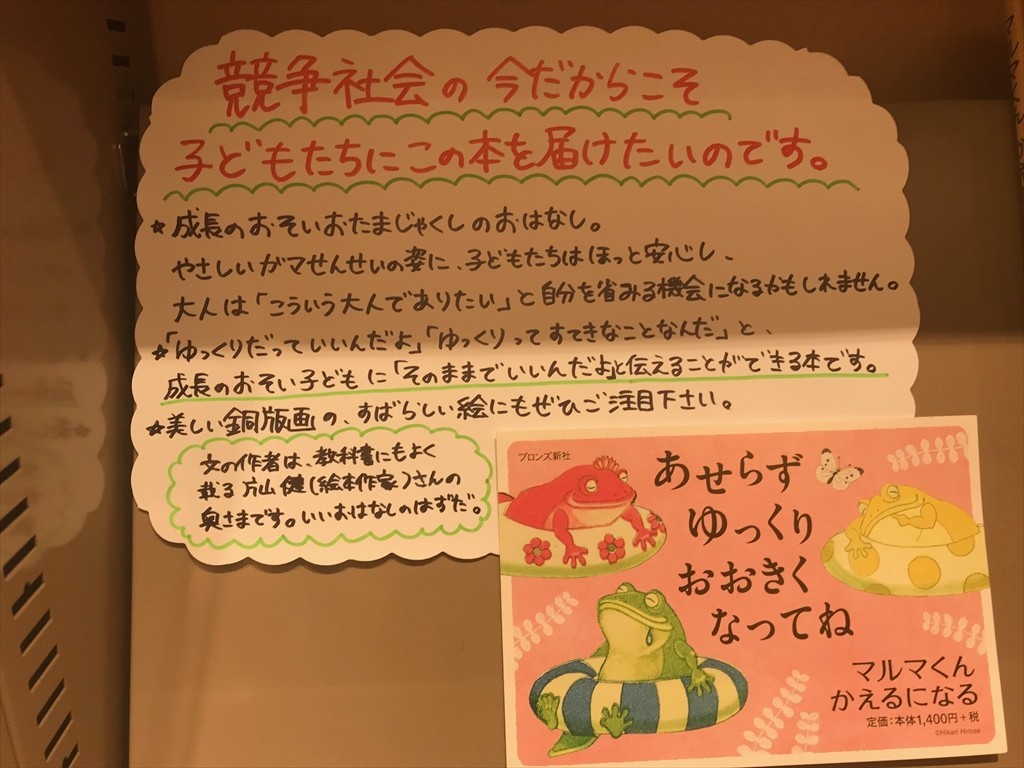 競争社会の今だからこそ
子どもたちにこの本を届けたいのです。
★成長のおそいおたまじゃくしのおはなし。
やさしいガマせんせいの姿に、子どもたちはほっと安心し、
大人は「こういう大人でありたい」と自分を省みる機会になるかもしれません。
★「ゆっくりだっていいんだよ」「ゆっくりってすてきなことなんだ」と、
成長のおそい子どもに「そのままでいいんだよ」と伝えることができる本です。
★美しい銅版画の、すばらしい絵にもぜひご注目下さい。
文の作者は、教科書にもよく
載る片山健(絵本作家)さんの
奥さまです。いいおはなしのはずだ。
ブロンズ新社
あせらず
ゆっくり
おおきく
なってね
マルマくん
かえるになる
定価:本体1,400円+税
©Hikari Hirose